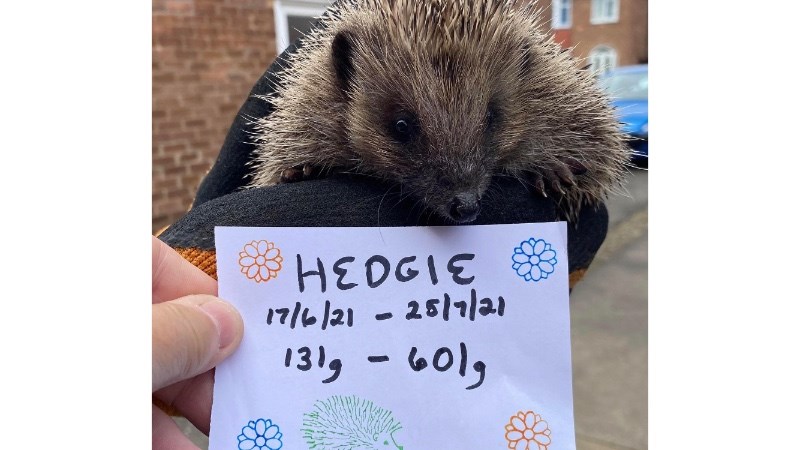 HEDGIE
17/6/21 - 25/7/21
131g - 601g